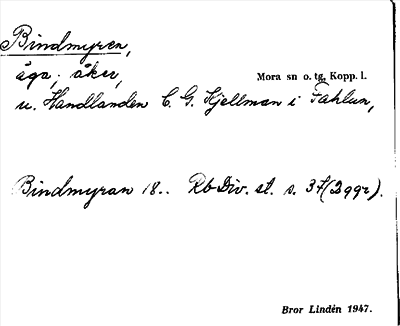 Bindmyren,
äga; åker,
Mora sn o. tg, Kopp. l.
u. Handlanden C. G. Kjellman i Fahlun,
Bindmyran 18.. Rb Div. st. s. 37 (2 ggr).
Bror Lindén 1947.